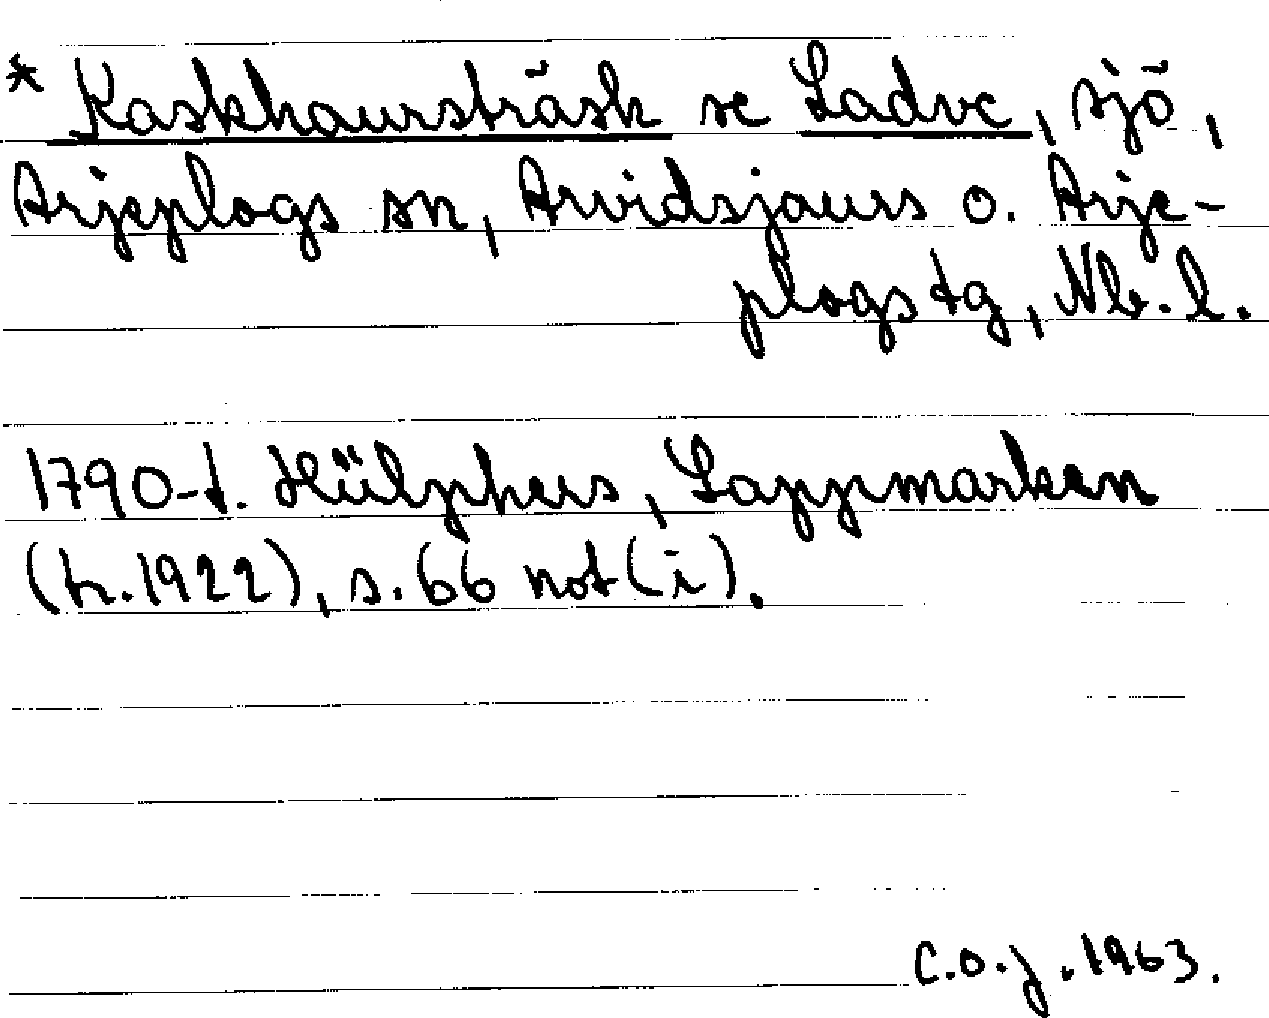 * Kaskhaursträsk se Ladve, sjö,
Arjeplogs sn, Arvidsjaurs o. Arje-
plogs tg, Nb. l.
1790-t. Hülphers, Lappmarken
(tr. 1922), s. 66 not (i).
C.O.J. 1963.